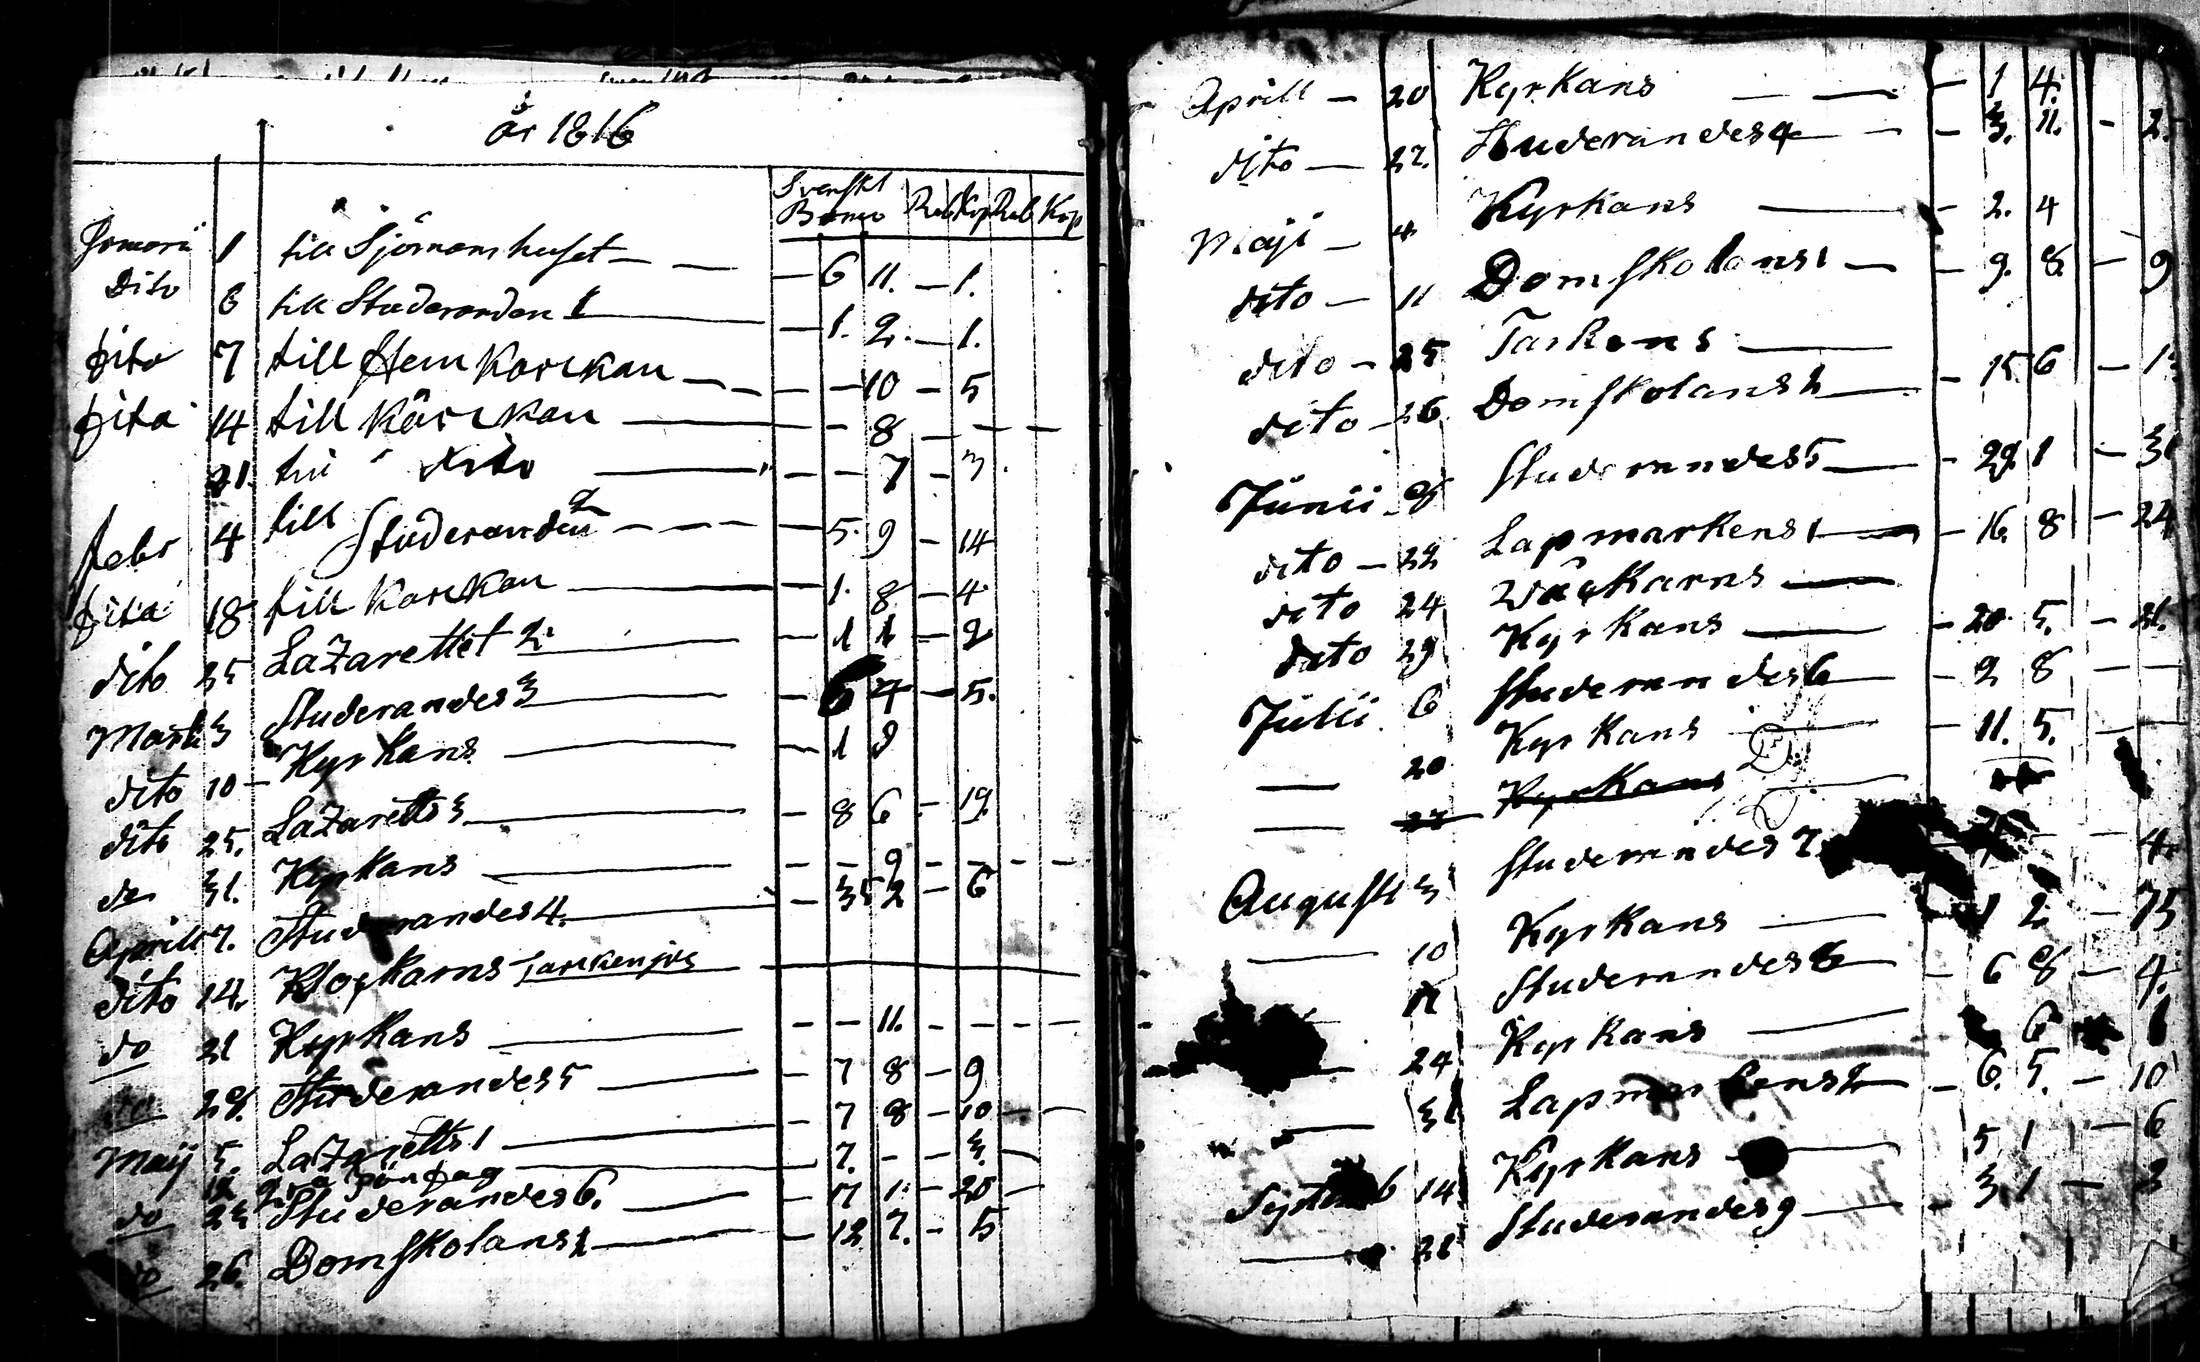 år 1816
Svenskt
Banco Rub Kop Rub Kop
1 till Sjömanshuset — — — 6 11. — 1.
Dito 6 till Studeranden 1 — 1. 2. — 1.
dito 7 till Hem Korckan — — — 10 — 5
dito 14 till Kårckan — — 8 — — —
21. till dito — — — 7 — 3.
Febr 4 till Studeranden 2 — — — 5. 9 — 14
dito 18 till Korckan — 1. 8 — 4.
dito 25 Lazarettet 2. — 1 1 — 2
3 Studerandes 3 — 6 4 — 5.
dito 10 — Kyrkans — 1 9
dito 25. Lazaretts 3 — 8 6 — 19.
do 31. Kyrkans — — — 9 — — — —
Aprill 7. Studerandes 4. — 35 2 — 6
dito 14.
do 21 Kyrkans — — — 11. — — — —
28. Studerandes 5 — 7 8 — 9
Maij 5. Lazaretts 1 — 7 8 — 10 —
12 7. — — 3. —
do 23 Studerandes 6. — 17 1. — 20 —
do 26. Domskolans 1 — 12 7. — 5
Aprill — 20 Kyrkans — — — 1 4.
dito — 27. Studerandes 4 — — 3. 11. — 2.
Maji — 4 Kyrkans — — 2. 4
dito — 11 Domskolans 1 — — 9. 8. — 9
dito — 25
dito — 26. Domskolans 2 — — 15 6 — 1
Junii 8 Studerandes 5 — — 29. 1 — 3
dito — 22 Lapmarkens 1 — — 16. 8 — 24
dito 24
dito 29 Kyrkans — — 20. 5. — 21.
Julii 6 Studerandes 6 — — 2 8 — —
— 20 Kyrkans — — 11. 5. —
— 27 Kyrkans —
Augusti 3 Studerandes 7. — 4.
— 10 Kyrkans — 1 2 — 75
17 Studerandes 8 — — 6 8 — 4.
— 24 Kyrkans — 6
— 31 Lapmarkens 2 — — 6. 5. — 10
14 Kyrkans — 5 1 — 6
— 28 Studerandes 9 — — 3. 1 — 3